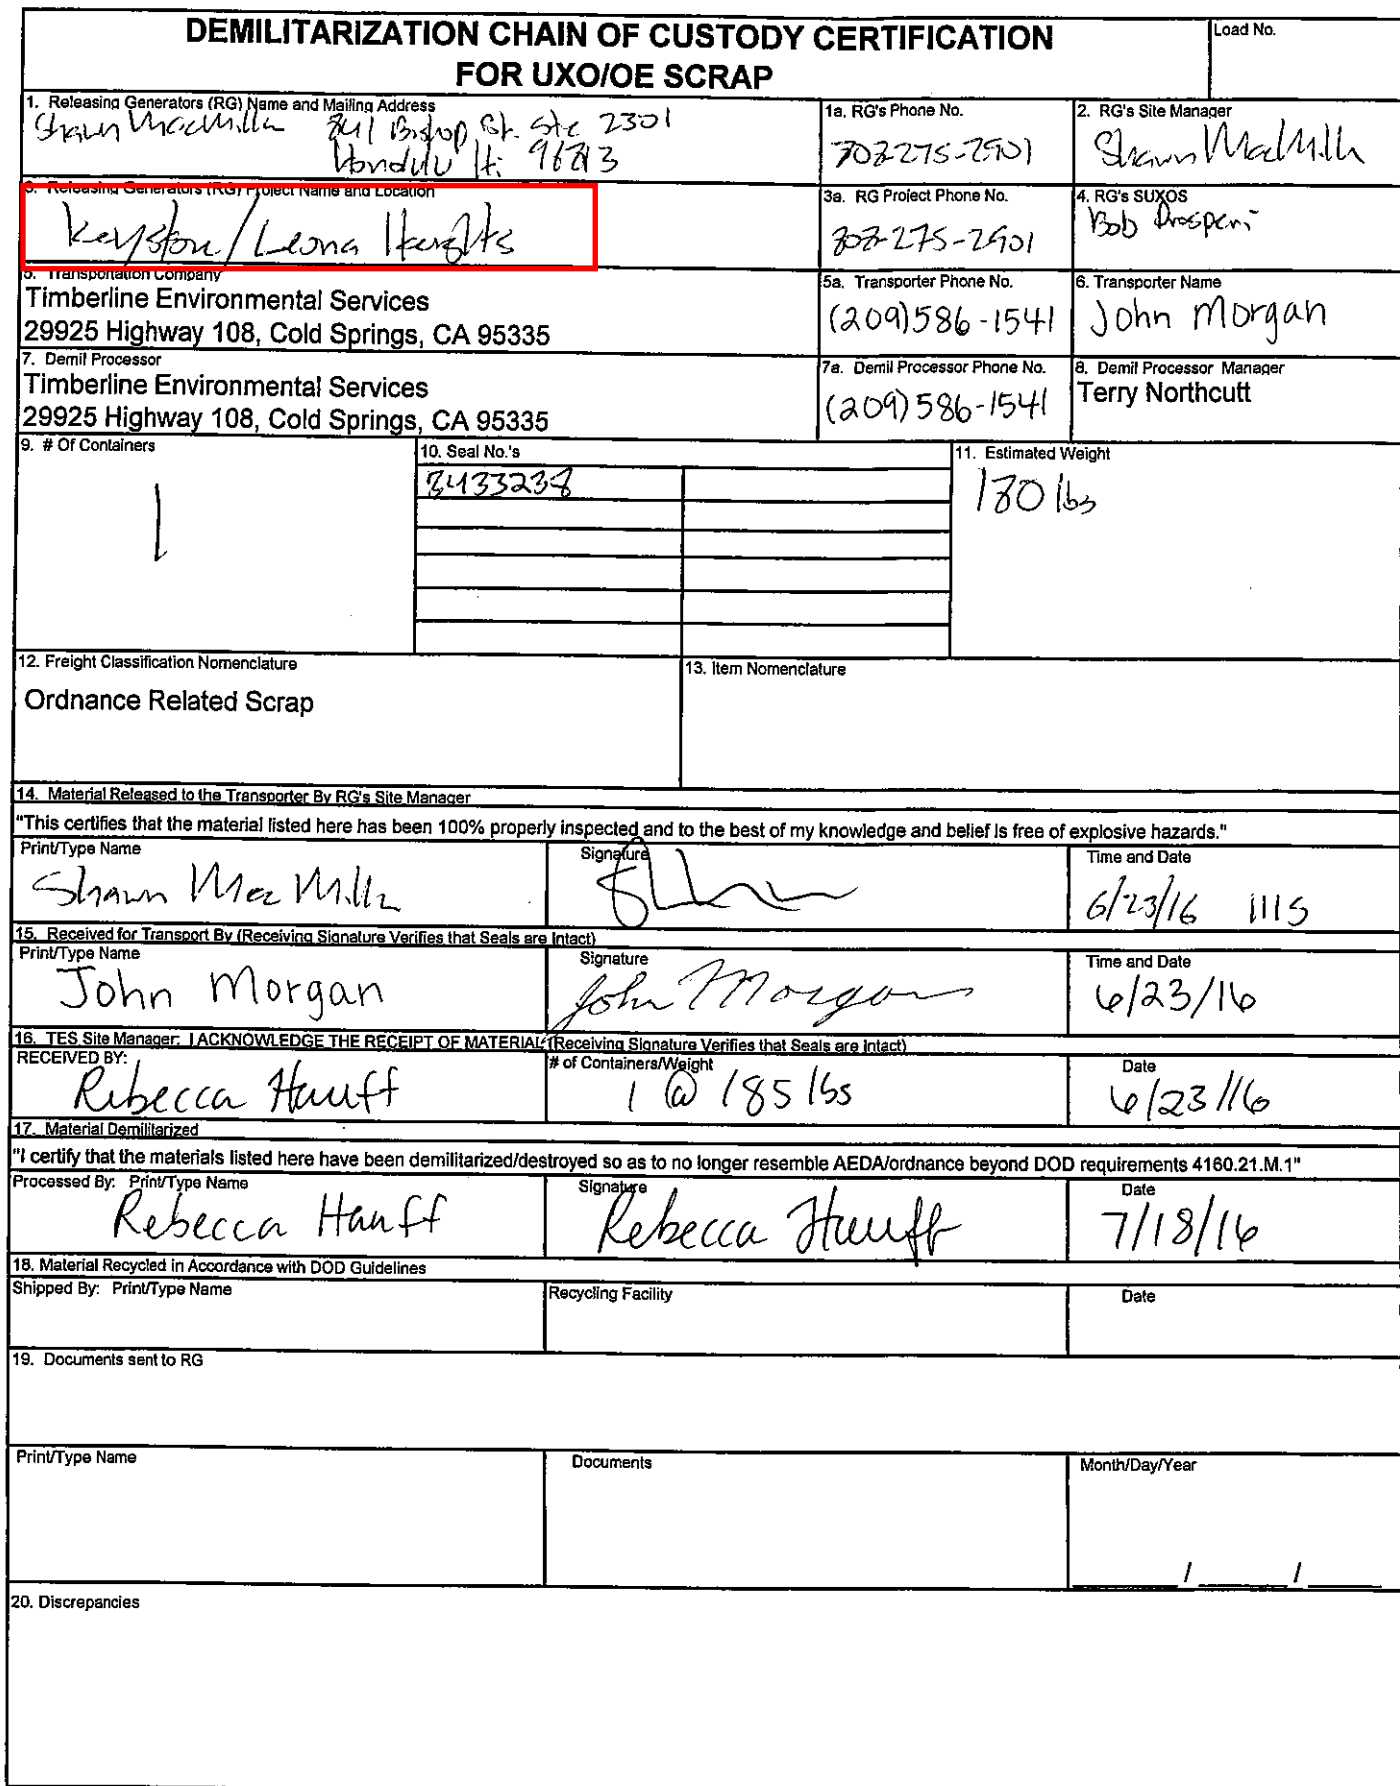 DEMILITARIZATION CHAIN OF CUSTODY CERTIFICATION
FOR UXO/OE SCRAP
Load No.
1. Releasing Generators (RG) Name and Mailing Address
Shawn MacMilln 841 Bishop St. Ste 2301
Honolulu Hi 96813
1a. RG's Phone No.
808-275-2901
2. RG's Site Manager
Shawn MacMilln
3. Releasing Generators (RG) Project Name and Location
Keyston/Leona Heights
3a. RG Project Phone No.
808-275-2901
4. RG's SUXOS
Bob Prosperi
5. Transportation Company
Timberline Environmental Services
29925 Highway 108, Cold Springs, CA 95335
5a. Transporter Phone No.
(209)586-1541
6. Transporter Name
John Morgan
7. Demil Processor
Timberline Environmental Services
29925 Highway 108, Cold Springs, CA 95335
7a. Demil Processor Phone No.
(209)586-1541
8. Demil Processor Manager
Terry Northcutt
9. # Of Containers
1
10. Seal No.'s
8433238
11. Estimated Weight
180 lbs
12. Freight Classification Nomenclature
Ordnance Related Scrap
13. Item Nomenclature
14. Material Released to the Transporter By RG's Site Manager
"This certifies that the material listed here has been 100% properly inspected and to the best of my knowledge and belief is free of explosive hazards."
Print/Type Name
Shawn MacMilln
Signature
Time and Date
6/23/16 1115
15. Received for Transport By (Receiving Signature Verifies that Seals are Intact)
Print/Type Name
John Morgan
Signature
John Morgan
Time and Date
6/23/16
16. TES Site Manager: I ACKNOWLEDGE THE RECEIPT OF MATERIAL (Receiving Signature Verifies that Seals are Intact)
RECEIVED BY:
Rebecca Hauff
# of Containers/Weight
1 @ 185 lbs
Date
6/23/16
17. Material Demilitarized
"I certify that the materials listed here have been demilitarized/destroyed so as to no longer resemble AEDA/ordnance beyond DOD requirements 4160.21.M.1"
Processed By: Print/Type Name
Rebecca Hauff
Signature
Rebecca Hauff
Date
7/18/16
18. Material Recycled in Accordance with DOD Guidelines
Shipped By: Print/Type Name
Recycling Facility
Date
19. Documents sent to RG
Print/Type Name
Documents
Month/Day/Year
____/____/____
20. Discrepancies